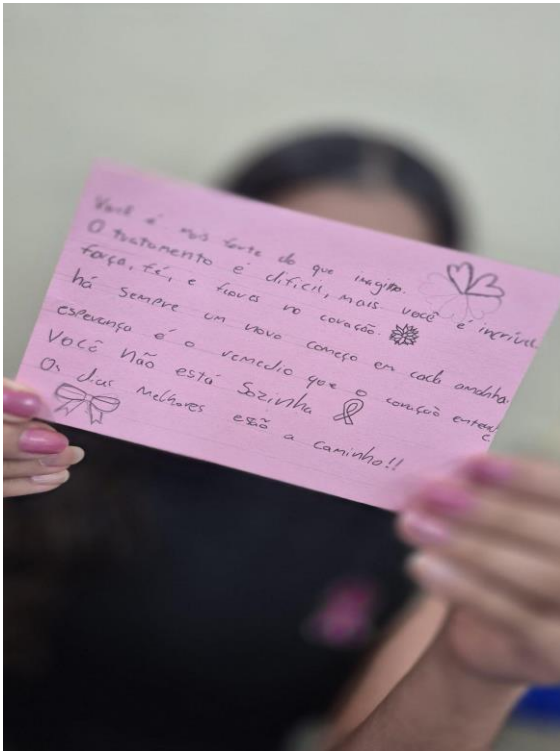 Você é mais forte do que imagina.
O tratamento é difícil, mais você é incrível
força, fé, e flores no coração.
há sempre um novo começo em cada amanhã
esperança é o remedio que o coração entende
Você não está Sozinha
Os dias Melhores estão a caminho!!